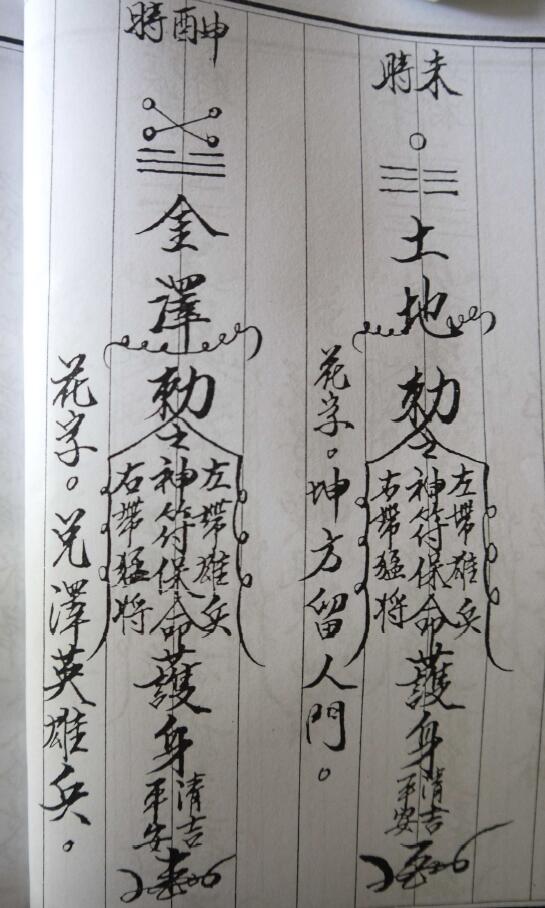 未時
土地
勅
左帶雄兵
之神符保命
右帶猛将
護身
清吉
平安
花字。坤方留人門。
申酉時
金澤
勅
左帶雄兵
之神符保命
右帶猛将
護身
清吉
平安
花字。兑澤英雄兵。